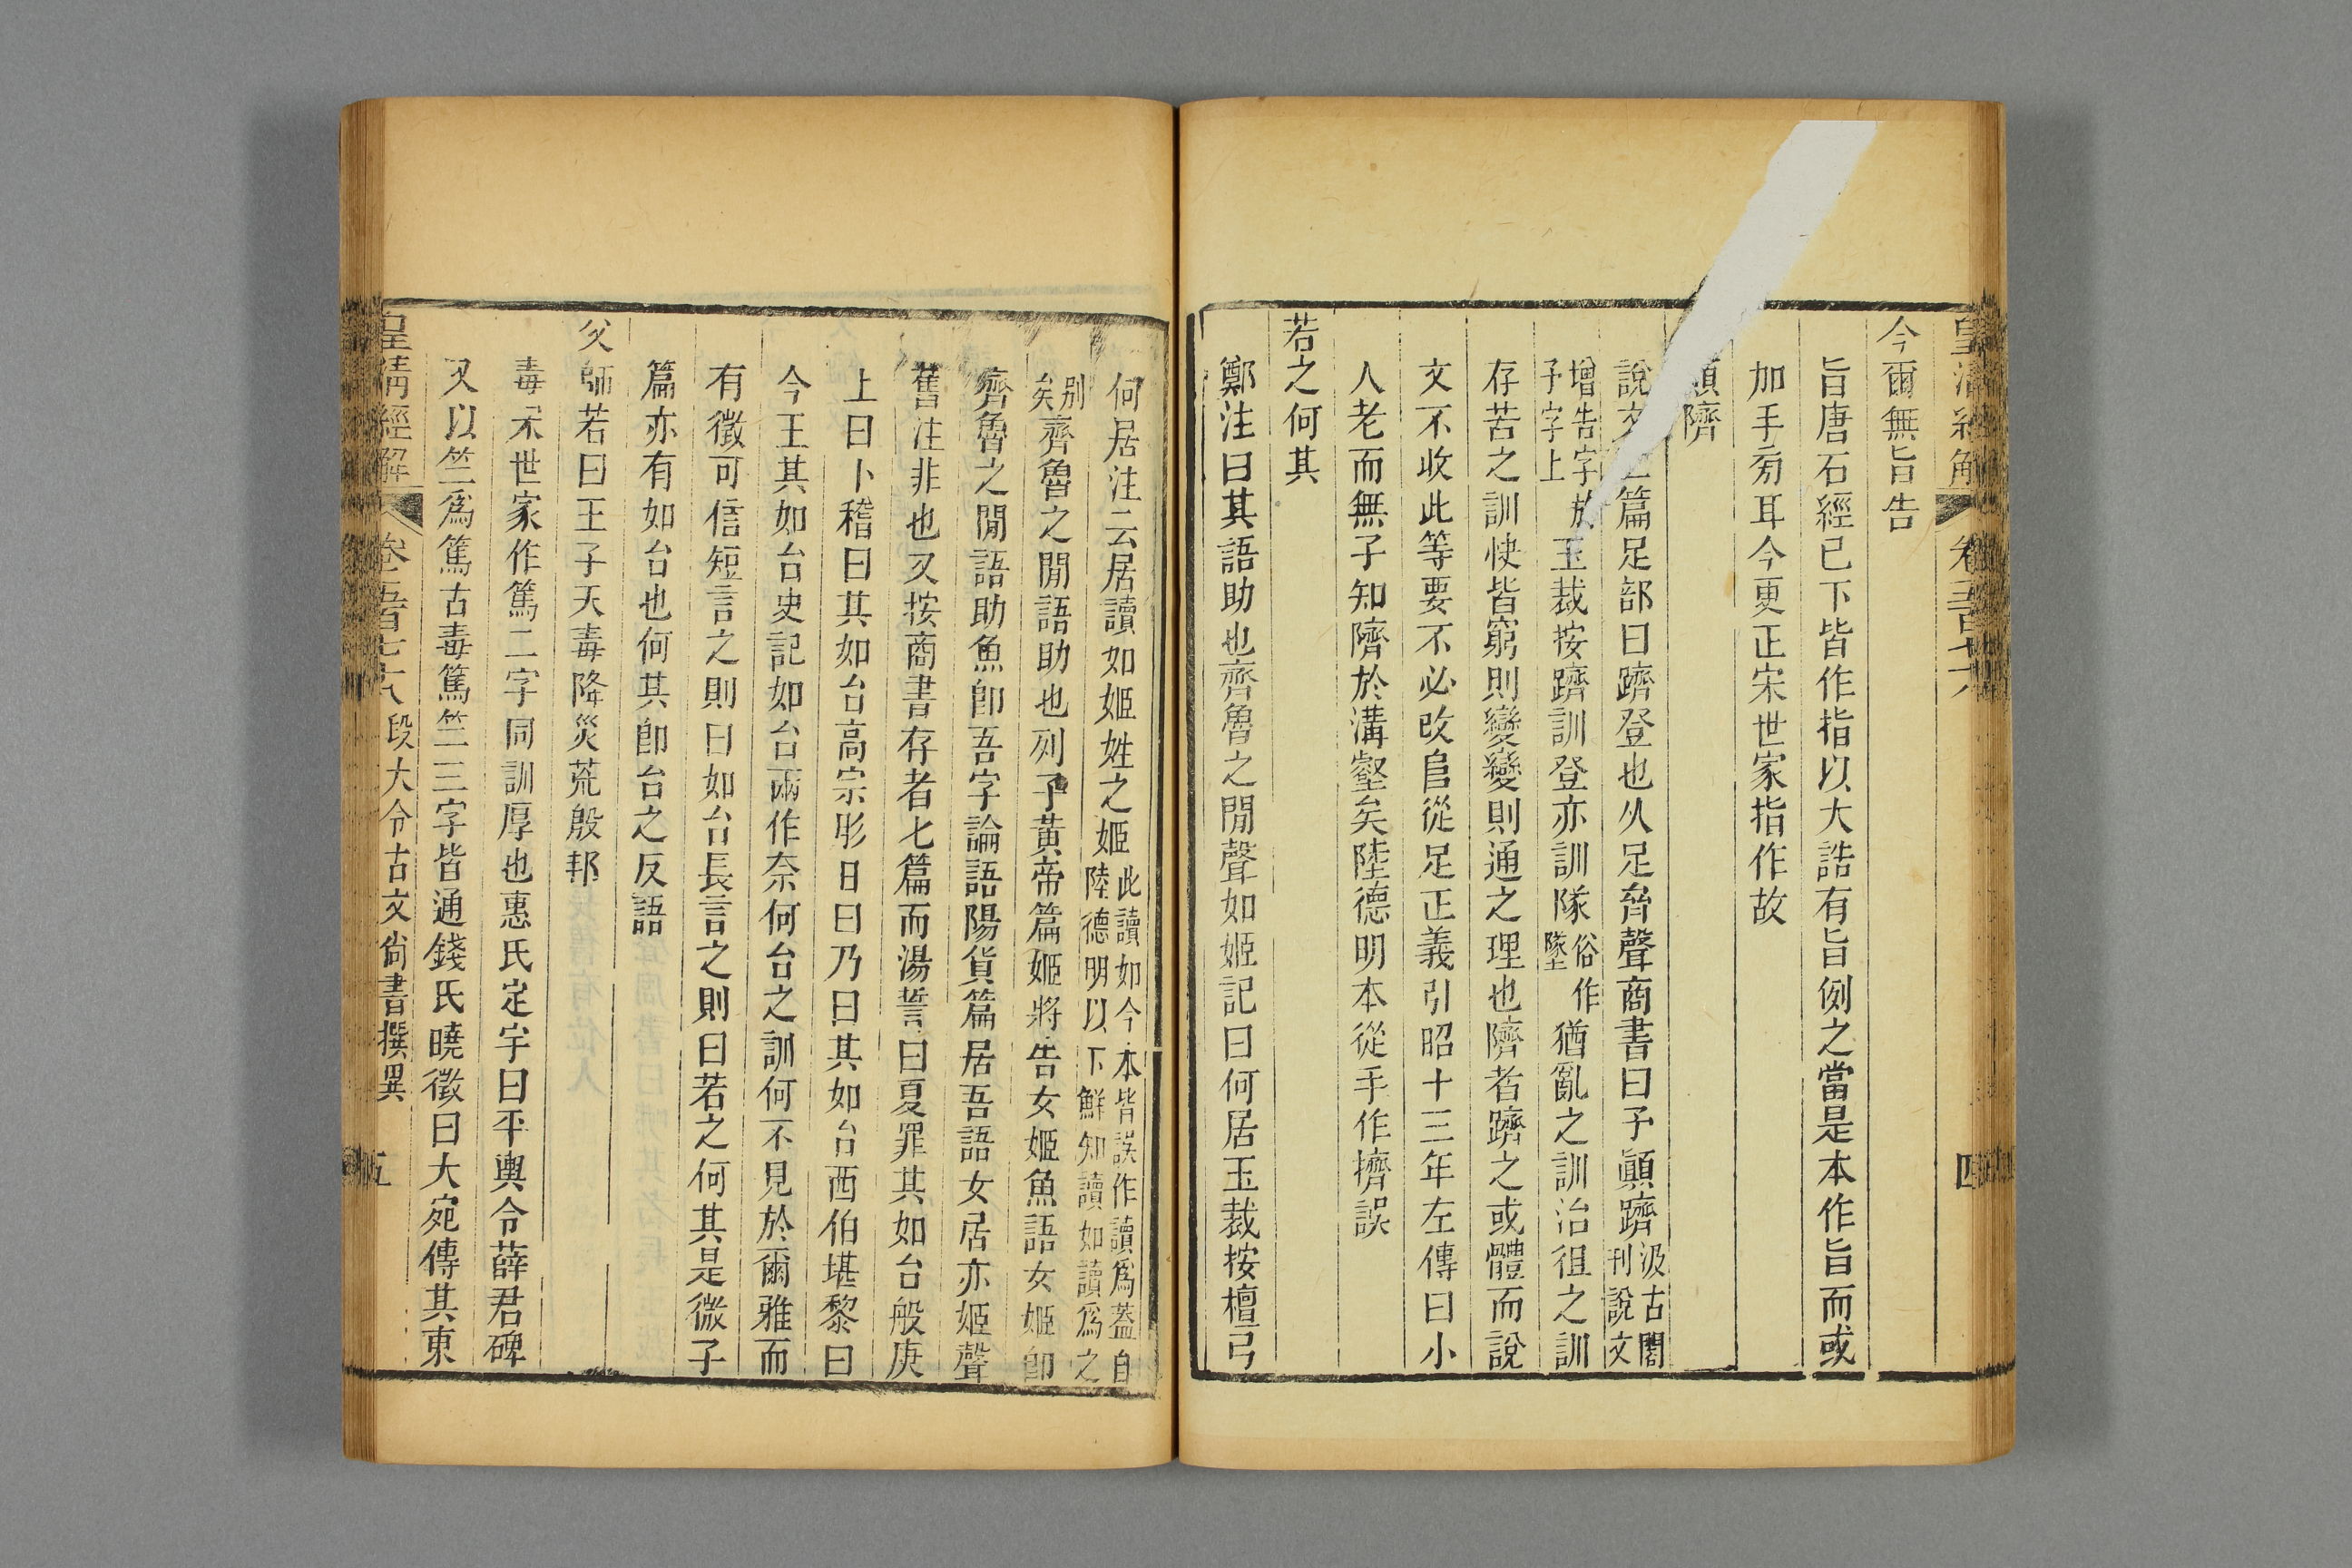 皇清經解 卷五百七十八 四
今爾無旨告
旨唐石經已下皆作指以大誥有旨例之當是本作旨而或
加手旁耳今更正宋世家指作故
隮
說文 篇足部曰躋登也从足齊聲商書曰予顚躋汲古閣刊說文
增告字予字上 玉裁按躋訓登亦訓隊俗作墜猶亂之訓治徂之訓
存苦之訓快皆窮則變變則通之理也隮者躋之或體而說
文不收此等要不必改𨸏從足正義引昭十三年左傳曰小
人老而無子知隮於溝壑矣陸德明本從手作擠誤
若之何其
鄭注曰其語助也齊魯之閒聲如姬記曰何居玉裁按檀弓
何居注云居讀如姬姓之姬此讀如今本皆誤作讀爲葢自陸德明以下鮮知讀如讀爲之
別矣齊魯之閒語助也列子黃帝篇姬將告女姬魚語女姬卽
齊魯之閒語助魚卽吾字論語陽貨篇居吾語女居亦姬聲
舊注非也又按商書存者七篇而湯誓曰夏罪其如台般庚
上曰卜稽曰其如台高宗肜日曰乃曰其如台西伯堪黎曰
今王其如台史記如台兩作奈何台之訓何不見於爾雅而
有徵可信短言之則曰如台長言之則曰若之何其是微子
篇亦有如台也何其卽台之反語
父師若曰王子天毒降災荒殷邦
毒宋世家作篤二字同訓厚也惠氏定宇曰平輿令薛君碑
又以竺爲篤古毒篤竺三字皆通錢氏曉徵曰大宛傳其東
皇清經解 卷五百七十八 段大令古文尙書撰異 五